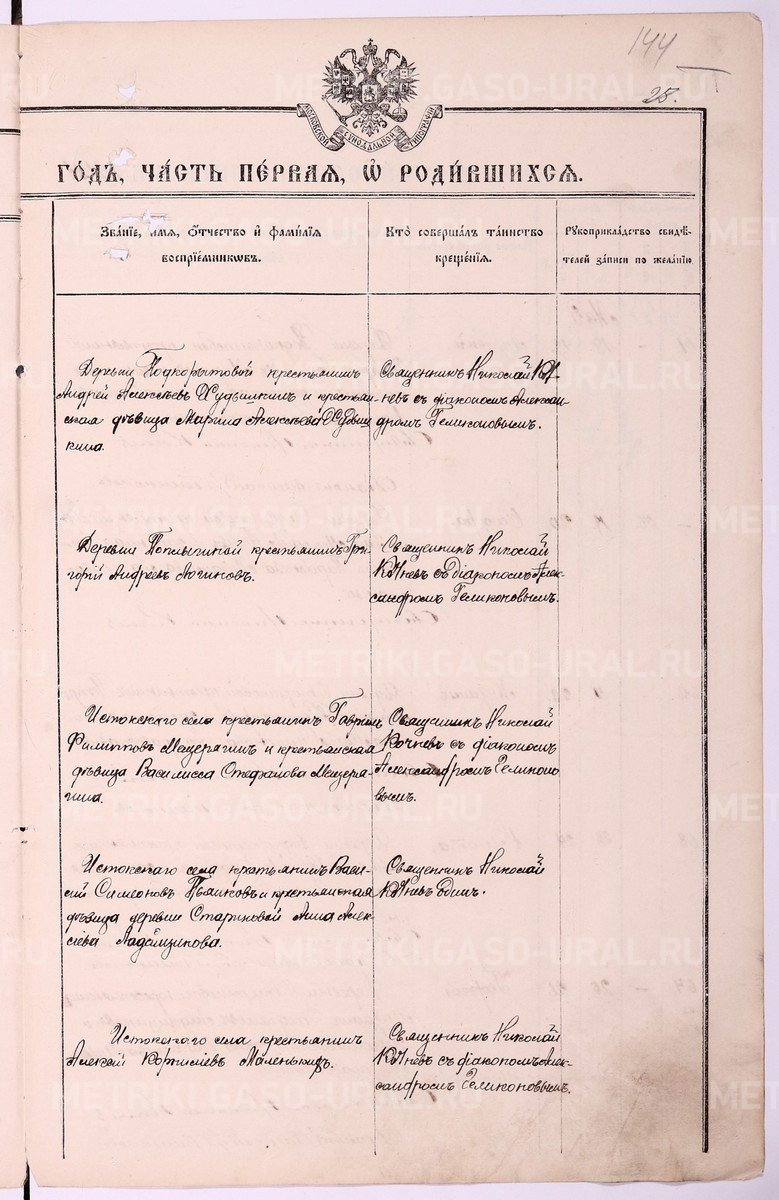 144
28.
МОСКОВСКОЙ СѴНОДАЛЬНОЙ ТИПОГРАФІИ
ГОДЪ, ЧАСТЬ ПЕРВАЯ, Ѽ РОДИВШИХСЯ.
Званіе, имя, отчество и фамилія
воспріемниковъ.
Кто совершалъ таинство
крещенія.
Рукоприкладство свидѣ-
телей записи по желанію.
Деревни Подкорытовой крестьянинъ
Андрей Алексѣевъ Худышкинъ и крестьян-
ская дѣвица Марина Алексѣева Худыш
кина.
Священникъ Николай
невъ съ діакономъ Алексан-
дромъ Геликоновымъ.
Деревни крестьянинъ Гри
горій Андреевъ Логиновъ.
Священникъ Николай
съ діакономъ Алек-
сандромъ Геликоновымъ.
Истокскаго села крестьянинъ Гавріилъ
Филипповъ Мещерягинъ и крестьянская
дѣвица Василисса Стефанова Мещеря-
гина.
Священникъ Николай
Кочневъ съ діакономъ
Александромъ Геликоно
вымъ.
Истокскаго села крестьянинъ Васи-
лій Симеоновъ Пьянковъ и крестьянская
дѣвица деревни Стариковой Анна Алек-
сѣева
Священникъ Николай
одинъ.
Истокскаго села крестьянинъ
Алексѣй Корниліевъ Маленькихъ.
Священникъ Николай
съ діакономъ Алек-
сандромъ Геликоновымъ.
METRIKI.GASO-URAL.RU